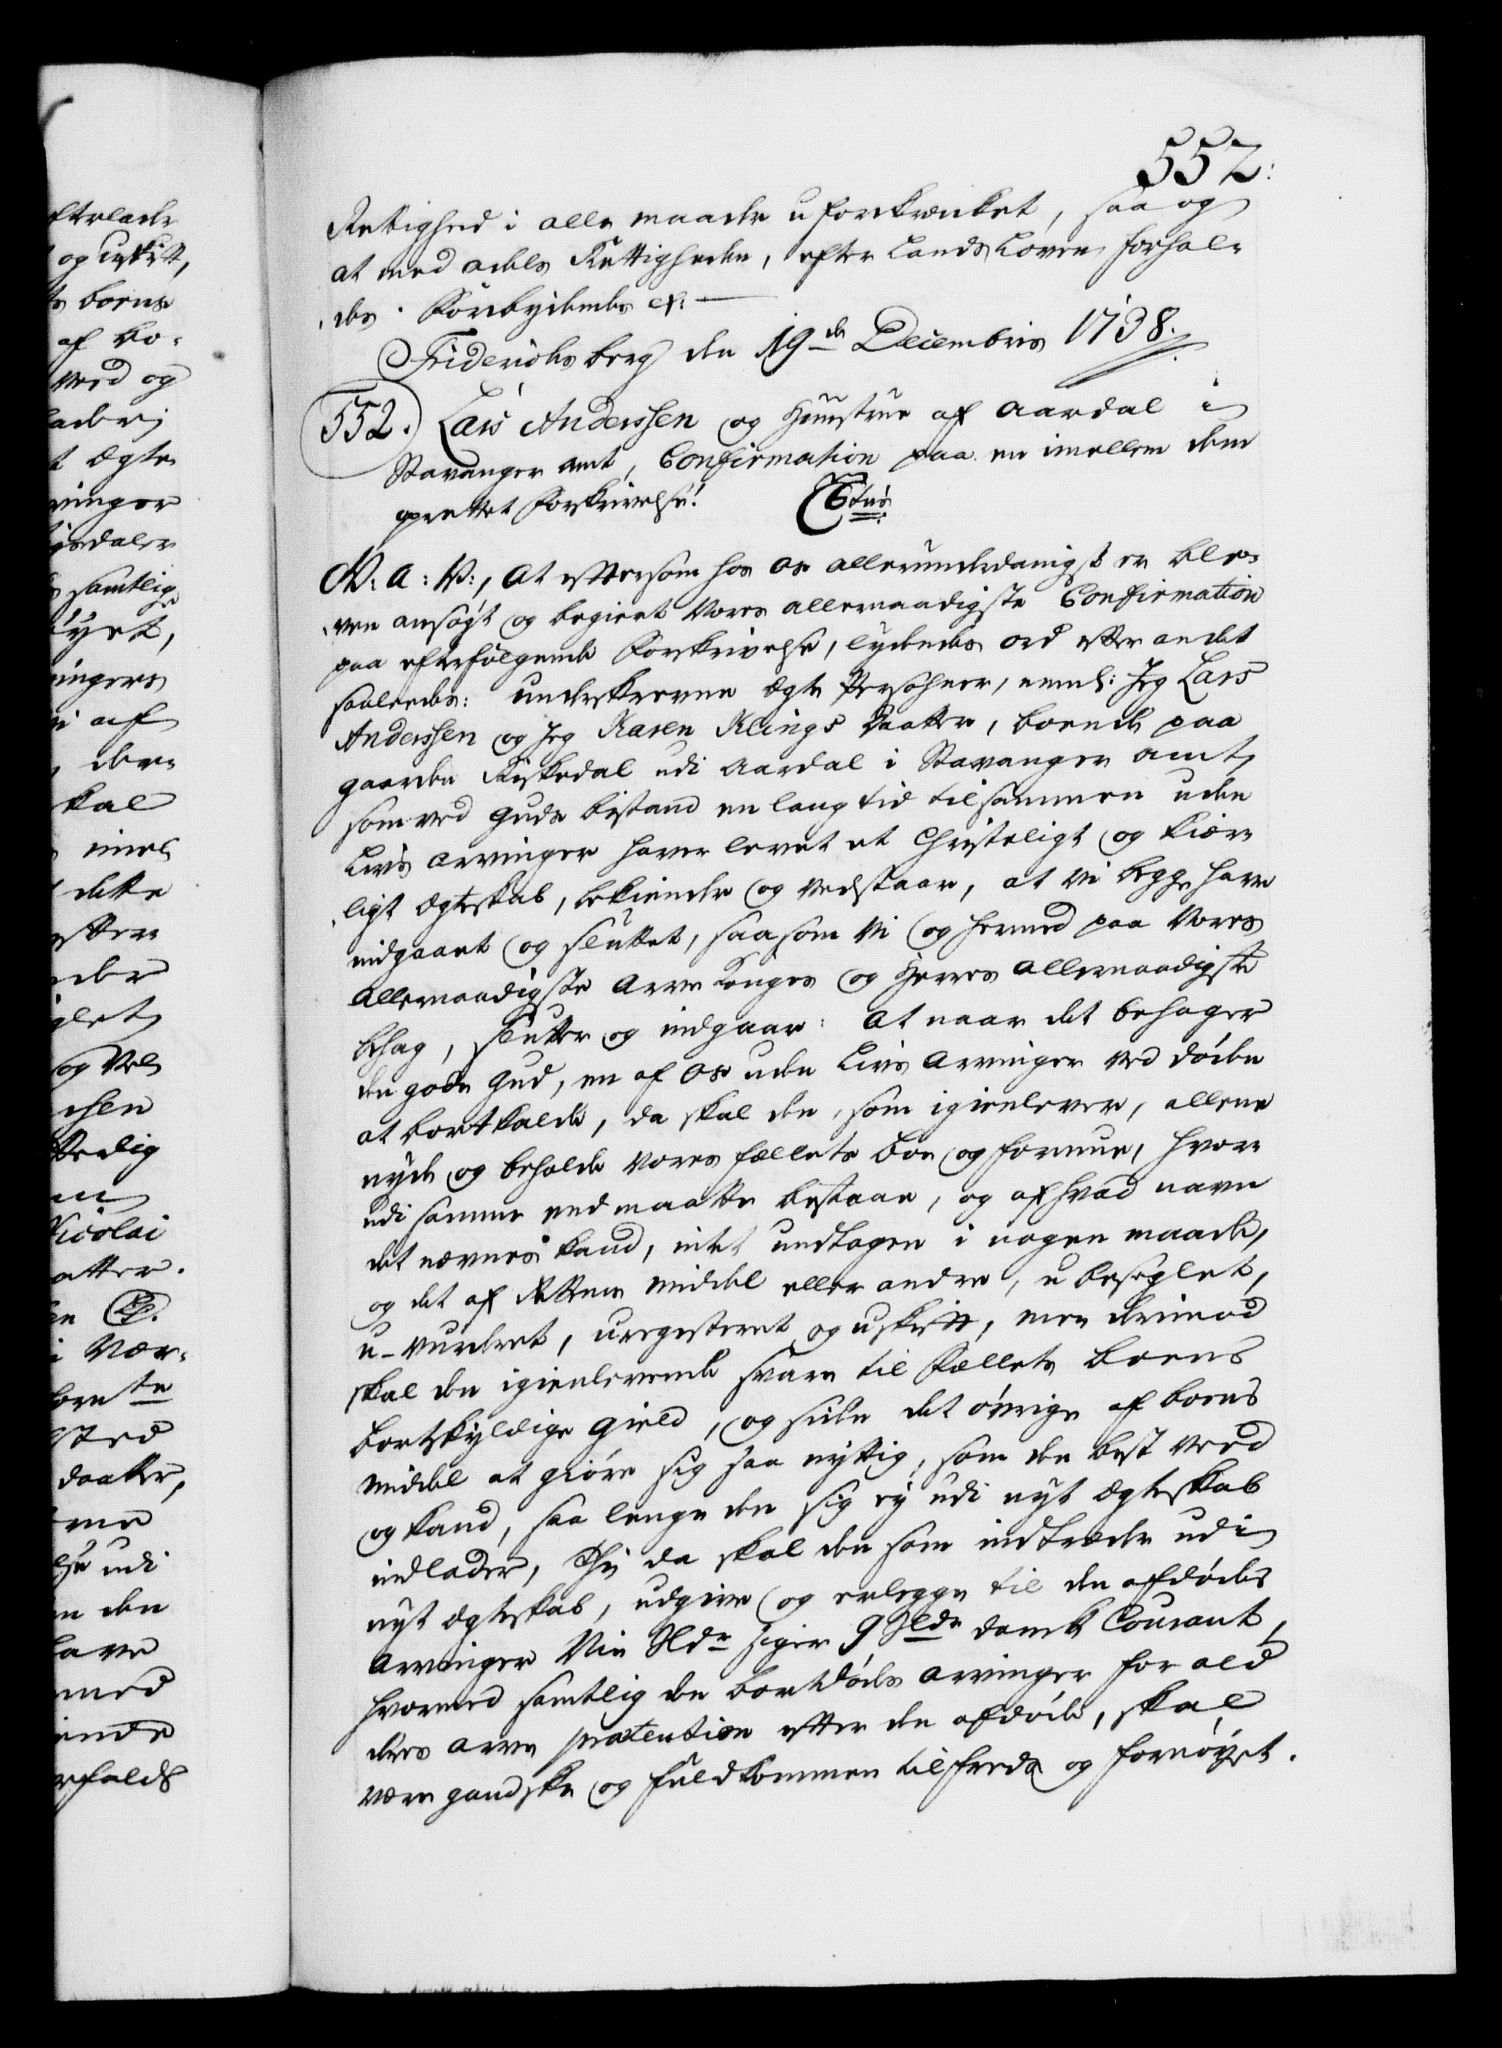 552:
Rettighed i alle maade uforkrænket, saa og
at med adels Rettigheder, efter Lands Loven forhol-
des. Forbydendes &:
Friderichsberg den 19de Decembris 1738.
552. Lars Anderssen og Huustrue af Aardal i
Stavanger Amt, Confirmation paa en imellem dem
oprettet Forskrivelse!
V: A: V:, At eftersom hos os allerunderdanigst er ble-
ven ansøgt og begiert Vores allernaadigste Confirmation
paa efterfølgende Forskrivelse, lydendes ord efter andet
saaledes: Underskrevne Ægte Persohner, neml: Jeg Lars
Anderssen og Jeg Karen Klings Daatter, boende paa
gaarden Riskedal udi Aardal i Stavanger Amt,
som ved Guds bistand en lang tid tilsammen uden
Livs Arvinger haver levet et Christeligt og kiær-
ligt Ægteskab, bekiender og vedstaar, at Vi begge have
indgaaet og sluttet, saasom Vi og hermed paa Vores
Allernaadigste Arve Konges og Herres allernaadigste
behag, slutter og indgaar: At naar det behager
den gode Gud, en af os uden Livs Arvinger ved døden
at bortkalde, da skal den, som igienlever, allene
nyde og beholde Vores fælleds boe og formue, hvor-
udi samme end maatte bestaae, og af hvad navn
det nævnes kand, intet undtagen i nogen maade,
og det af Rettens middel eller andre, u beseglet,
u-vurderet, uregisteret og uskift, men derimod
skal den igienlevende svare til Fælleds Boens
bortskyldige Gield, og siden det øvrige af boens
middel at giøre sig saa nyttig, som den best veed
og kand, saa lenge den sig ey udi nyt Ægteskab
indlader, Thi da skal den som indtræder udi
nyt Ægteskab, udgive og erlegge til den afdødes
Arvinger Nie Rdr siger 9 Rdr dansk Courant,
hvormed samtlig den bortdødes Arvinger for ald
deres arve prætention efter den afdøde, skal
være gandske og fuldkommen tilfreds og fornøyet.